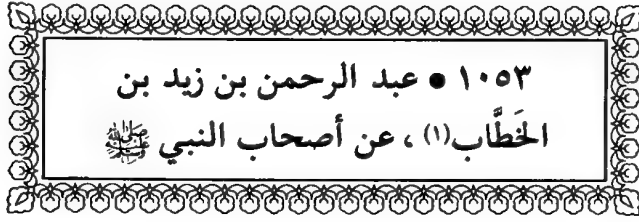 ١٠٥٣ • عبد الرحمن بن زيد بن
الخَطَّاب(١)، عن أصحاب النبي ﷺ